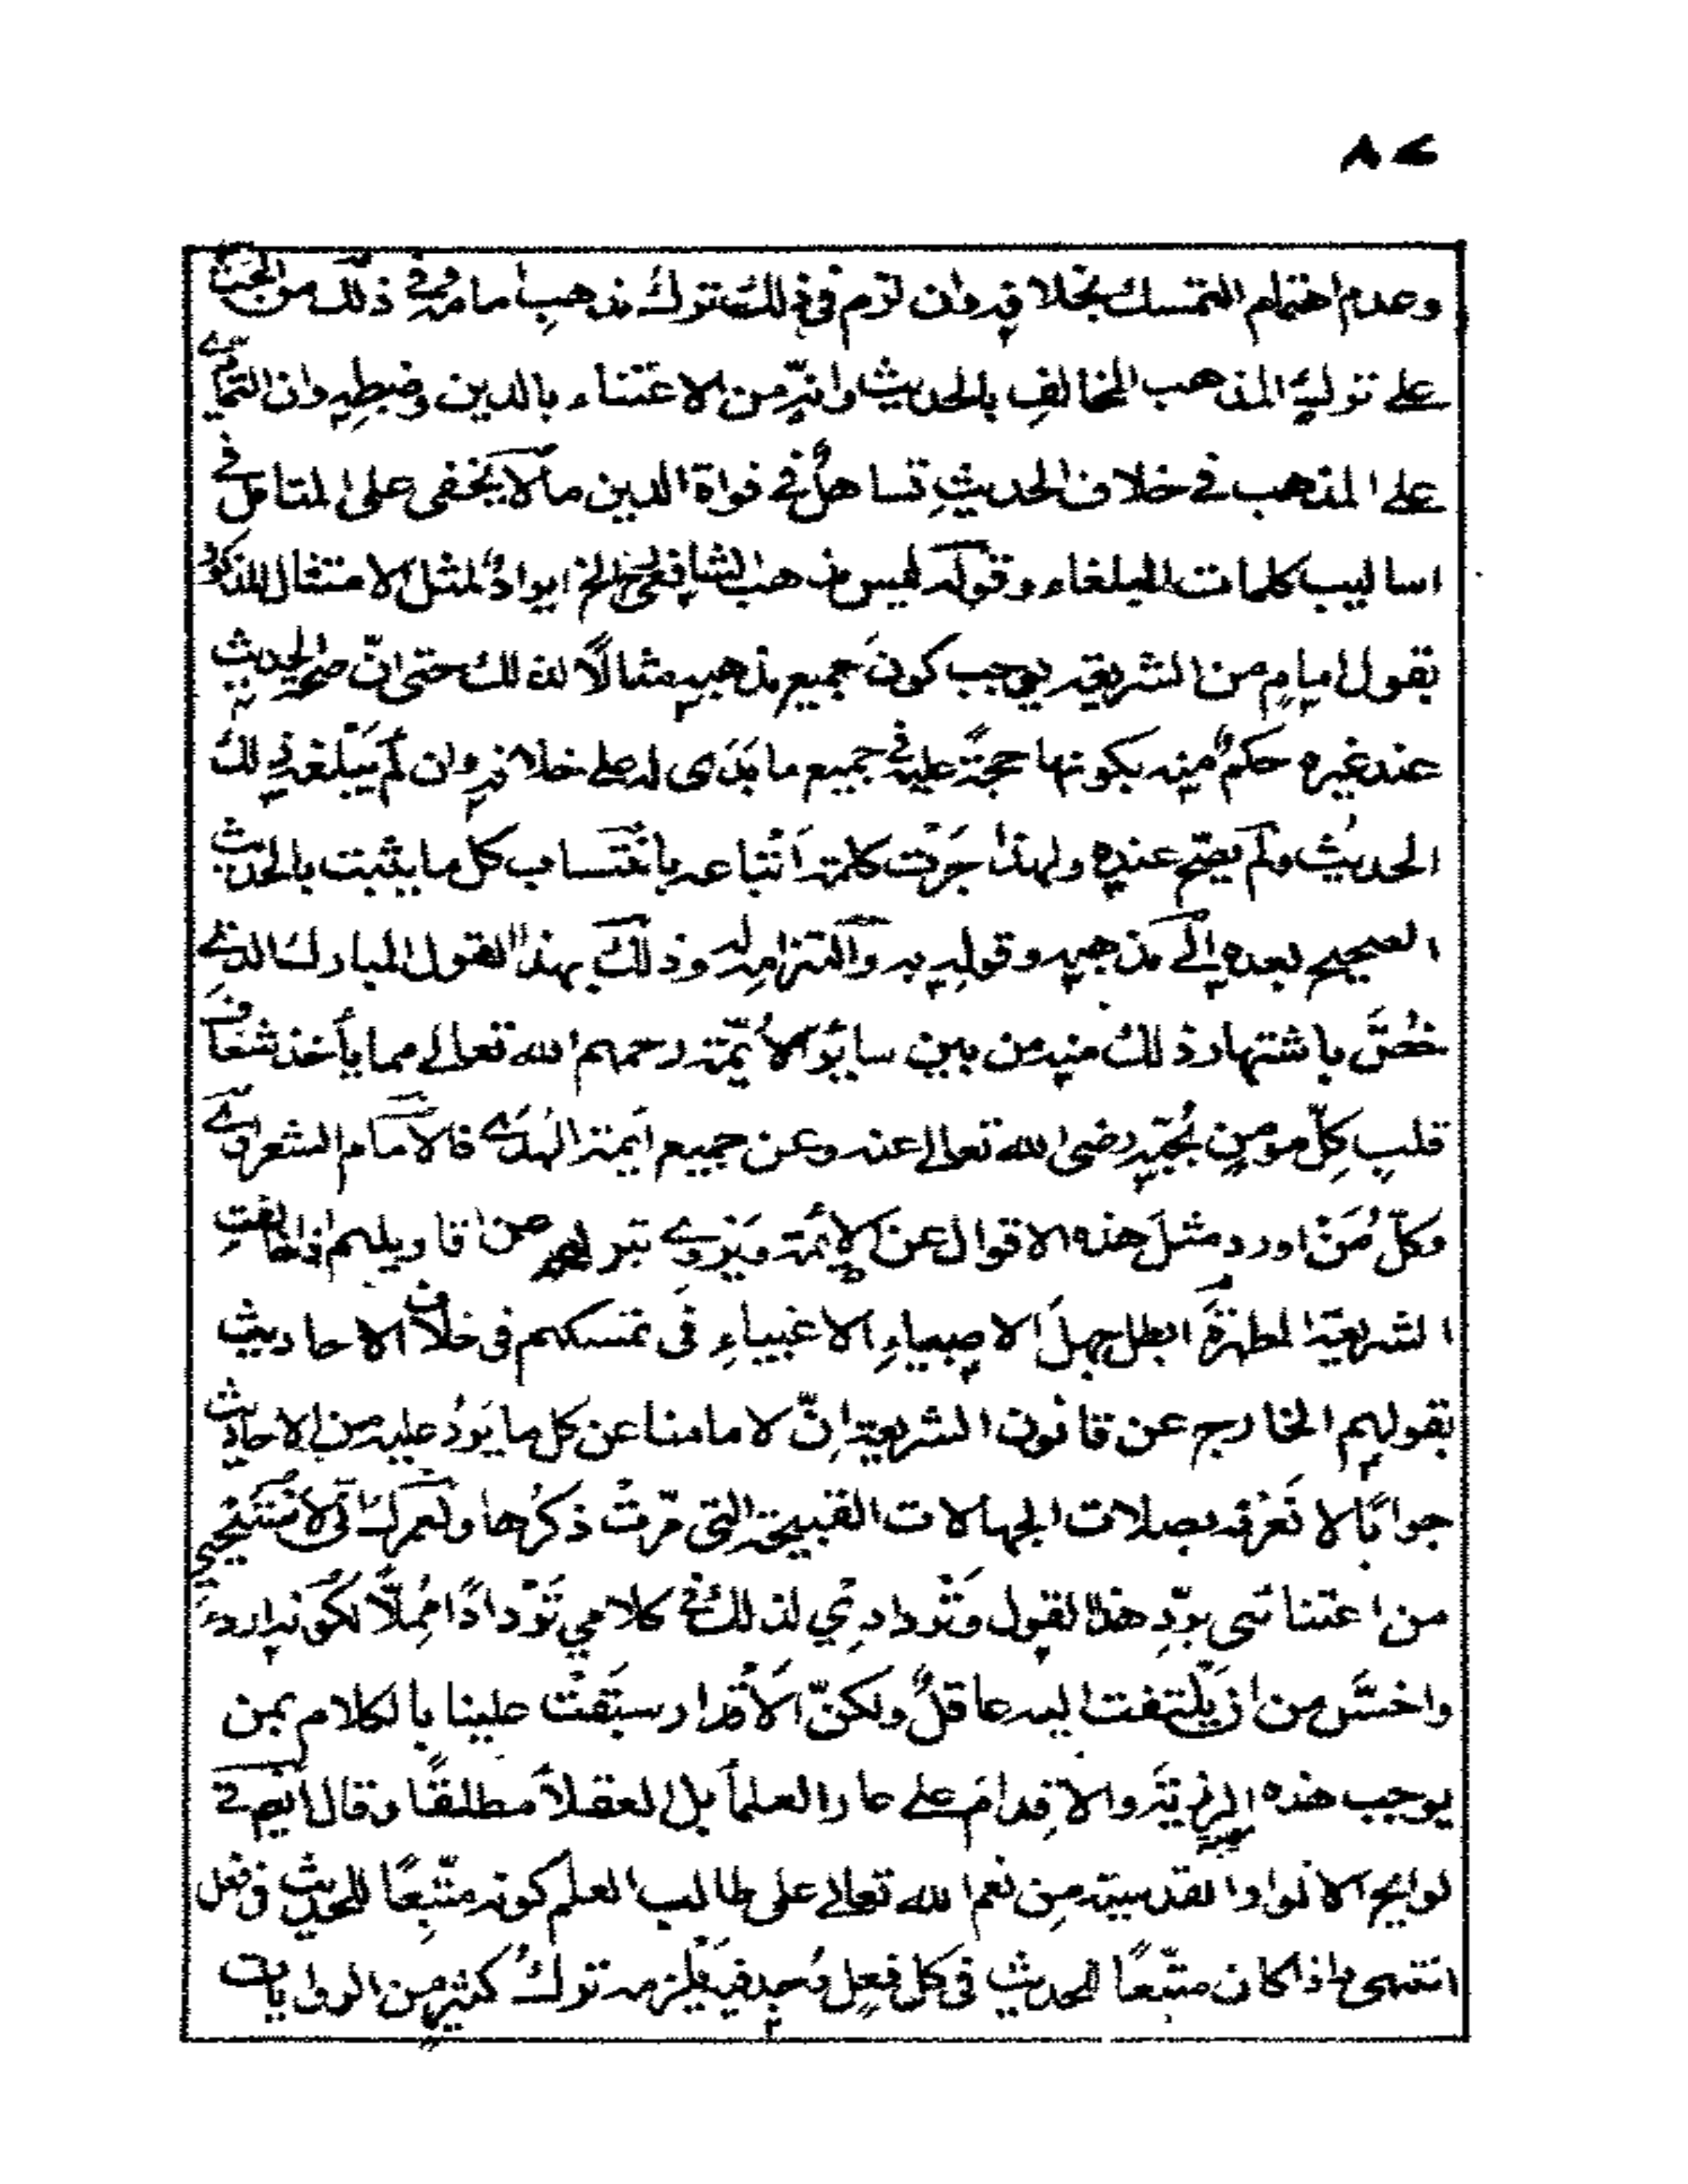 ٨٧
وعدم اهتمام التمسك بخلافه وان لزم في ذلك ترك مذهب امامه وفي ذلك من الحث
على ترك المذهب المخالف بالحديث وانه من الاعتناء بالدين وضبطه وان التمادي
على المذهب في خلاف الحديث تساهل في نواة الدين مالا يخفى على المتامل في
اساليب كلمات البلغاء وقوله ليس مذهب الشافعي الخ ايراد لمثل الامتثال المذكور
بقول امام من الشريعة يوجب كون جميع مذهبه مثالا لذلك حتى ان صحة الحديث
عند غيره حكم منه بكونها حجة عليه في جميع ما بدى له على خلافه وان لم يبلغه ذلك
الحديث ولم يصح عنده ولهذا جرت كلمة اتباعه بانتساب كل ما يثبت بالحديث
الصحيح بعده الى مذهبه وقوله به والتزامه له وذلك بهذا القول المبارك الذي
خص باشتهار ذلك منه من بين سائر الائمة رحمهم الله تعالى مما ياخذ شغاف
قلب كل مومن بحبه رضى الله تعالى عنه وعن جميع ائمة الهدى فالامام الشعراوي
وكل من اورد مثل هذه الاقوال عن الائمة ويروي تبريهم من اقاويلهم اذا خالفت
الشريعة المطهرة ابطل جهل الاصبياء الاغبياء في تمسكهم في خلاف الاحاديث
بقولهم الخارج عن قانون الشريعة ان لامامنا عن كل ما يرد عليه من الاحاديث
جوابا لا نعرفه بصلات الجهالات القبيحة التي مرت ذكرها ولعمرك اني لاستحيي
من اعتنائي برد هذا القول وتردادي لذلك في كلامي تردادا مملا لكونه اردء
واخس من ان يلتفت اليه عاقل ولكن الاقدار سبقت علينا بالكلام بمن
يوجب هذه الرزية والاقدام على عار العلما بل العقلا مطلقا وقال ايضا في
لوايح الانوار القدسية من نعم الله تعالى على طالب العلم كونه متبعا للحديث في فعل
انتهى واذا كان متبعا للحديث في كل فعل يجد فيه فيلزمه ترك كثير من الروايات